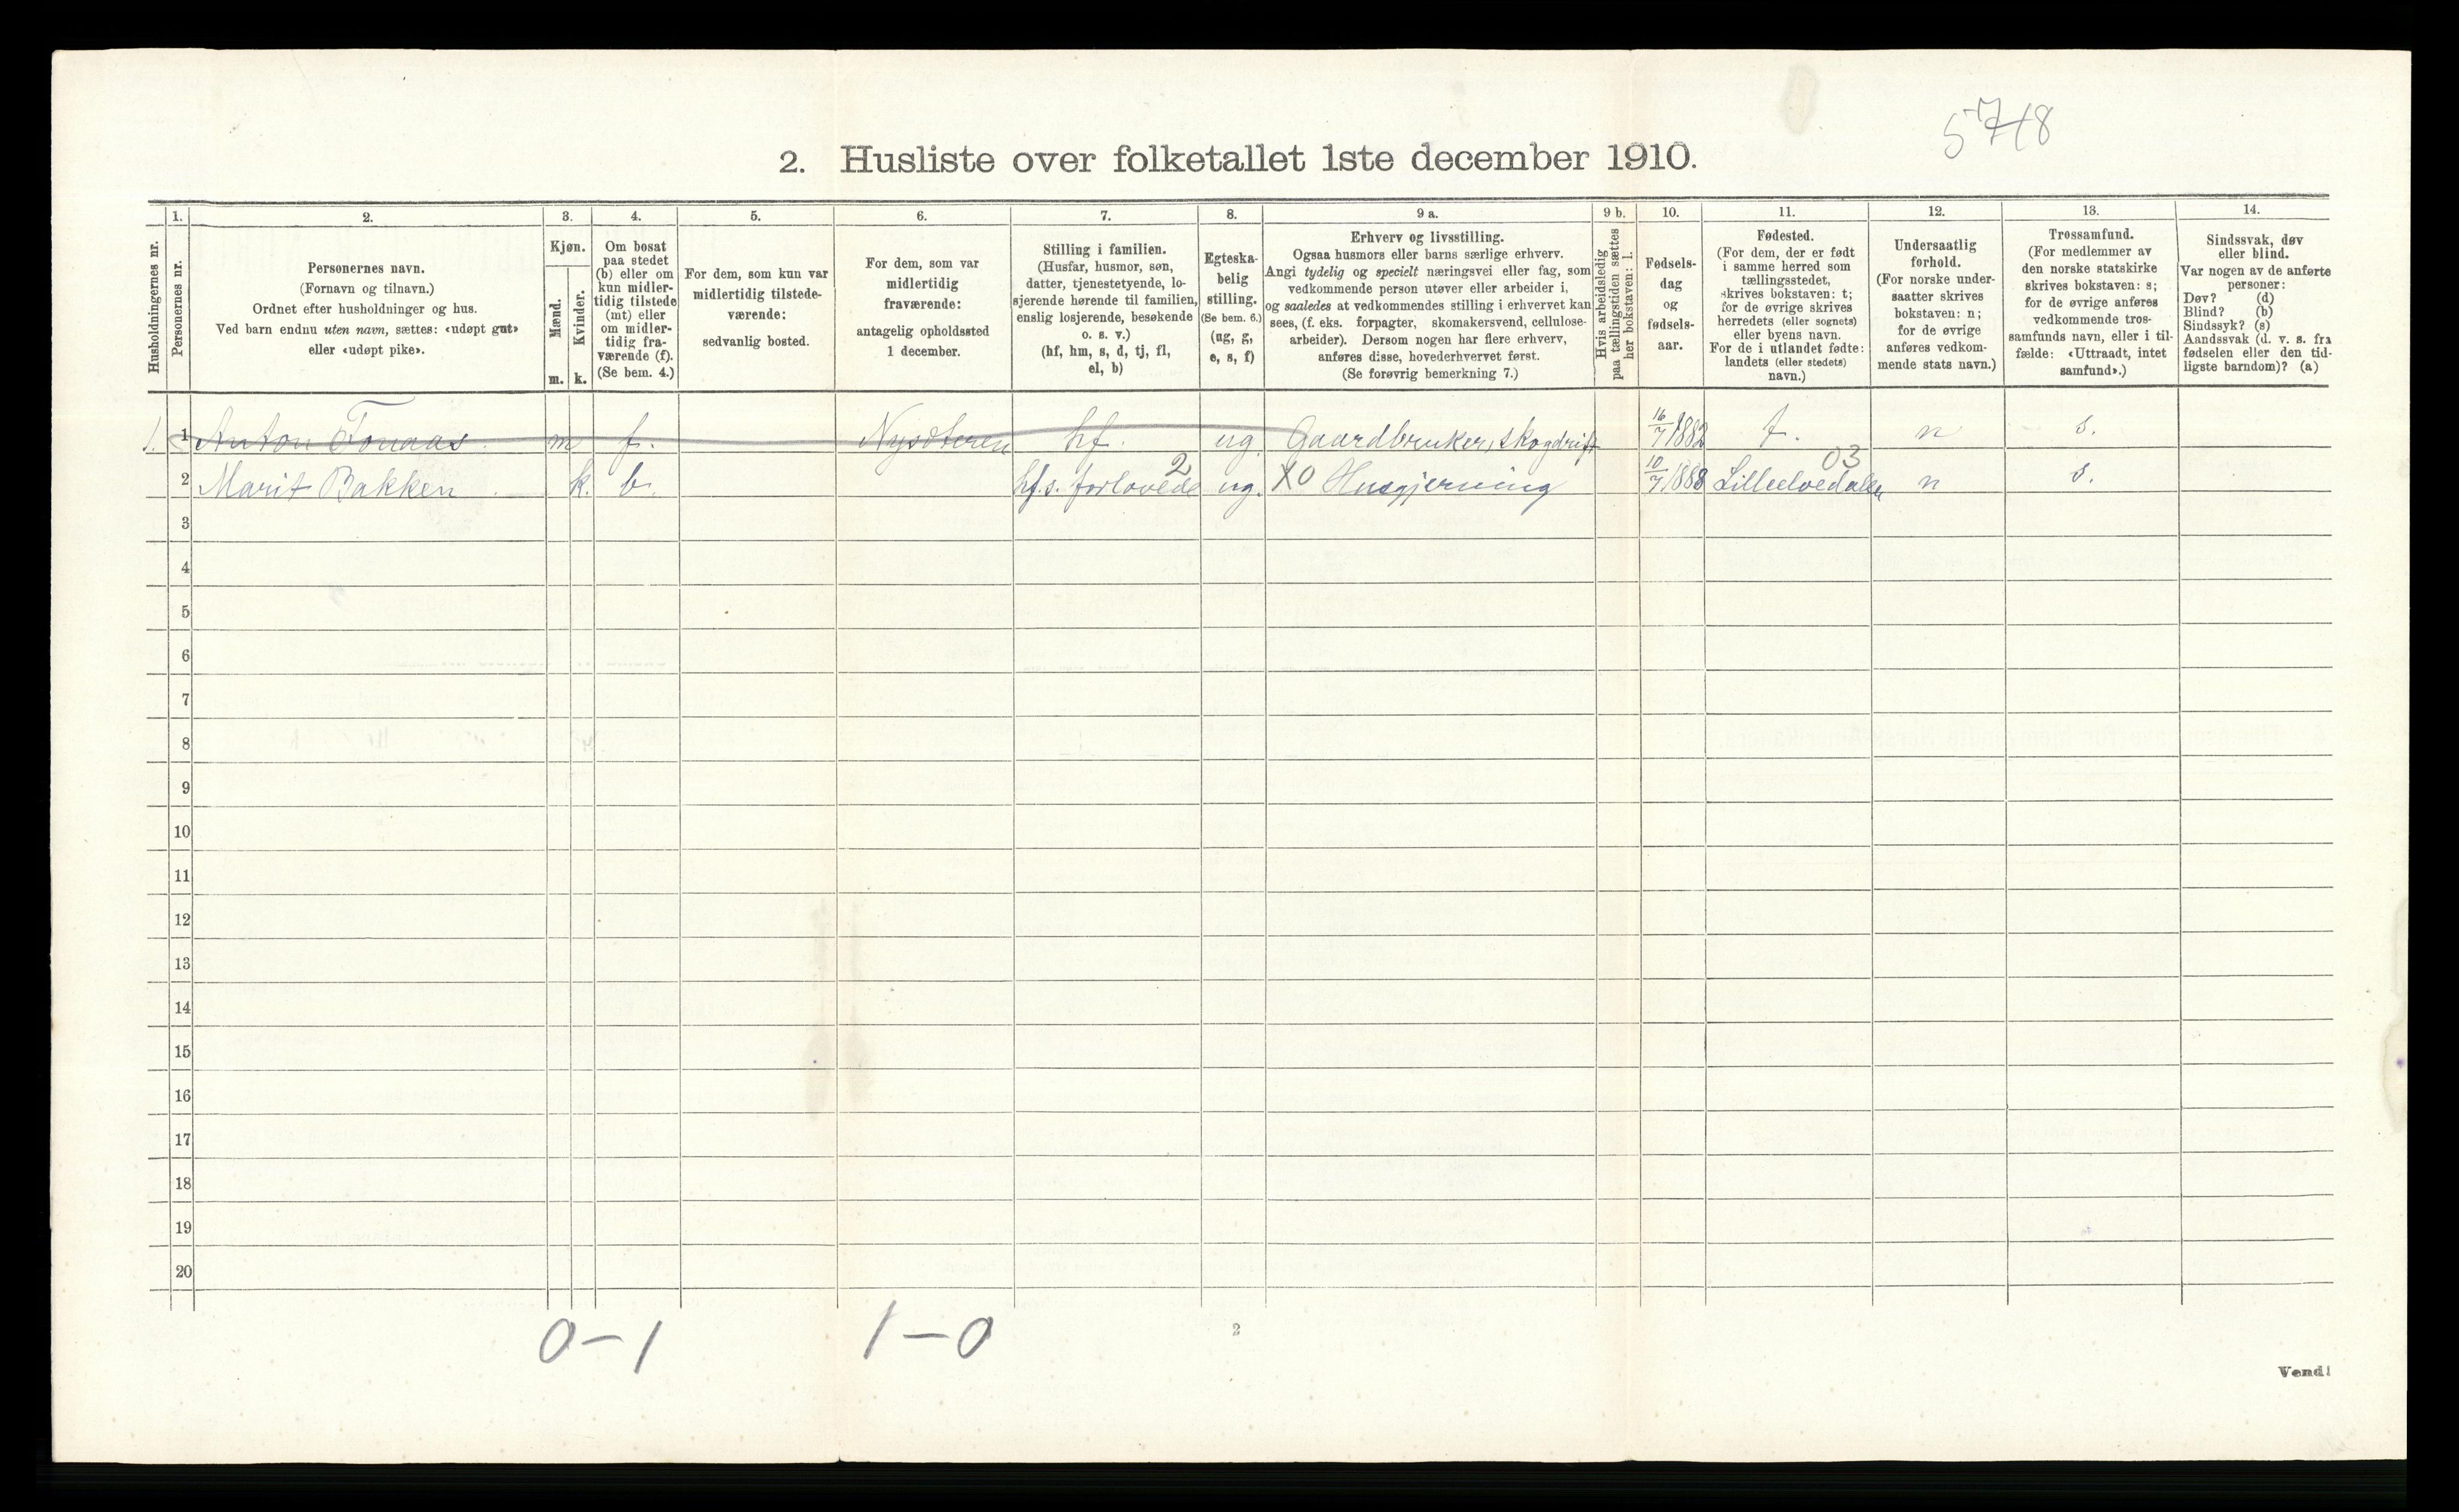 5718
2. Husliste over folketallet 1ste december 1910.
Husholdningernes nr.
1.
Personernes nr.
2.
Personernes navn.
(Fornavn og tilnavn.)
Ordnet efter husholdninger og hus.
Ved barn endnu uten navn, sættes: «udøpt gut»
eller «udøpt pike».
3.
Kjøn.
Mænd.
m.
Kvinder.
k.
4.
Om bosat
paa stedet
(b) eller om
kun midler-
tidig tilstede
(mt) eller
om midler-
tidig fra-
værende (f).
(Se bem. 4.)
5.
For dem, som kun var
midlertidig tilstede-
værende:
sedvanlig bosted.
6.
For dem, som var
midlertidig
fraværende:
antagelig opholdssted
1 december.
7.
Stilling i familien.
(Husfar, husmor, søn,
datter, tjenestetyende, lo-
sjerende hørende til familien,
enslig losjerende, besøkende
o. s. v.)
(hf, hm, s, d, tj, fl,
el, b)
8.
Egteska-
belig
stilling.
(Se bem. 6.)
(ug, g,
e, s, f)
9 a.
Erhverv og livsstilling.
Ogsaa husmors eller barns særlige erhverv.
Angi tydelig og specielt næringsvei eller fag, som
vedkommende person utøver eller arbeider i,
og saaledes at vedkommendes stilling i erhvervet kan
sees, (f. eks. forpagter, skomakersvend, cellulose-
arbeider). Dersom nogen har flere erhverv,
anføres disse, hovederhvervet først.
(Se forøvrig bemerkning 7.)
9 b.
Hvis arbeidsledig
paa tællingstiden sættes
her bokstaven: l.
10.
Fødsels-
dag
og
fødsels-
aar.
11.
Fødested.
(For dem, der er født
i samme herred som
tællingsstedet,
skrives bokstaven: t;
for de øvrige skrives
herredets (eller sognets)
eller byens navn.
For de i utlandet fødte:
landets (eller stedets)
navn.)
12.
Undersaatlig
forhold.
(For norske under-
saatter skrives
bokstaven: n;
for de øvrige
anføres vedkom-
mende stats navn.)
13.
Trossamfund.
(For medlemmer av
den norske statskirke
skrives bokstaven: s;
for de øvrige anføres
vedkommende tros-
samfunds navn, eller i til-
fælde: «Uttraadt, intet
samfund».)
14.
Sindssvak, døv
eller blind.
Var nogen av de anførte
personer:
Døv? (d)
Blind? (b)
Sindssyk? (s)
Aandssvak (d. v. s. fra
fødselen eller den tid-
ligste barndom)? (a)
1. 1 Anton Tonaas. m f. Nysæteren hf. ug. Gaardbruker, skogdrift 16/7 1882 t. n s.
2 Marit Bakken k. b. hf.s. forlovede 2 ug. XO Husgjerning 10/7 1888 Lilleelvedalen 03 n s.
3
4
5
6
7
8
9
10
11
12
13
14
15
16
17
18
19
20
0-1 1-0
2
Vend!